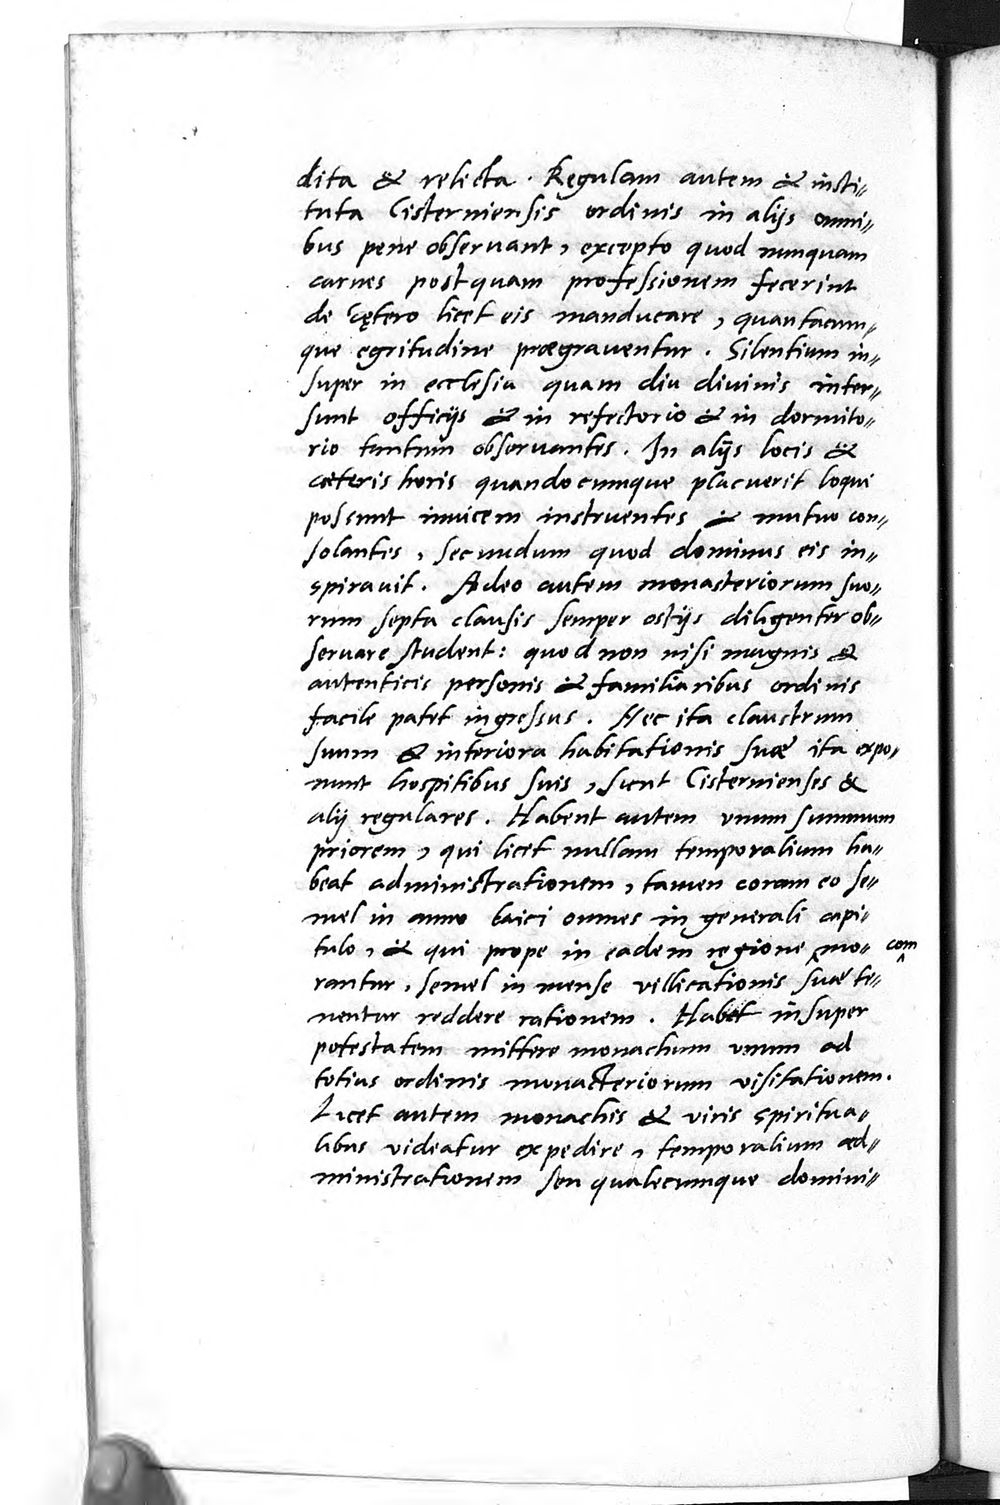 dita & relicta. Regulam autem & insti-
tuta Cisterniensis ordinis in alijs omni-
bus pene observant, excepto quod nunquam
carnes postquam professionem fecerint
de cętero licet eis manducare, quantacun-
que egritudine prægraventur. Silentium in-
super in ecclesia quam diu divinis inter-
sunt officijs & in refectorio & in dormito-
rio tantum observantes. In alijs locis &
cæteris horis quandocumque placuerit loqui
possunt invicem instruentes & mutuo con-
solantes, secundum quod dominus eis in-
spiravit. Adeo autem monasteriorum suo-
rum septa clausis semper ostijs diligenter ob-
servare student: quod non nisi magnis &
autenticis personis & familiaribus ordinis
facile patet ingressus. Nec ita claustrum
suum & interiora habitationis suæ ita expo-
nunt hospitibus suis, sicut Cisternienses &
alij regulares. Habent autem unum summum
priorem, qui licet nullam temporalium ha-
beat administrationem, tamen coram eo se-
mel in anno laici omnes in generali capi-
tulo, & qui prope in eadem regione ‸mo- com
rantur, semel in mense villicationis suæ te-
nentur reddere rationem. Habet insuper
potestatem mittere monachum unum ad
totius ordinis monasteriorum visitationem.
Licet autem monachis & viris spiritua-
libus videatur expedire, temporalium ad-
ministrationem seu qualecumque domini-